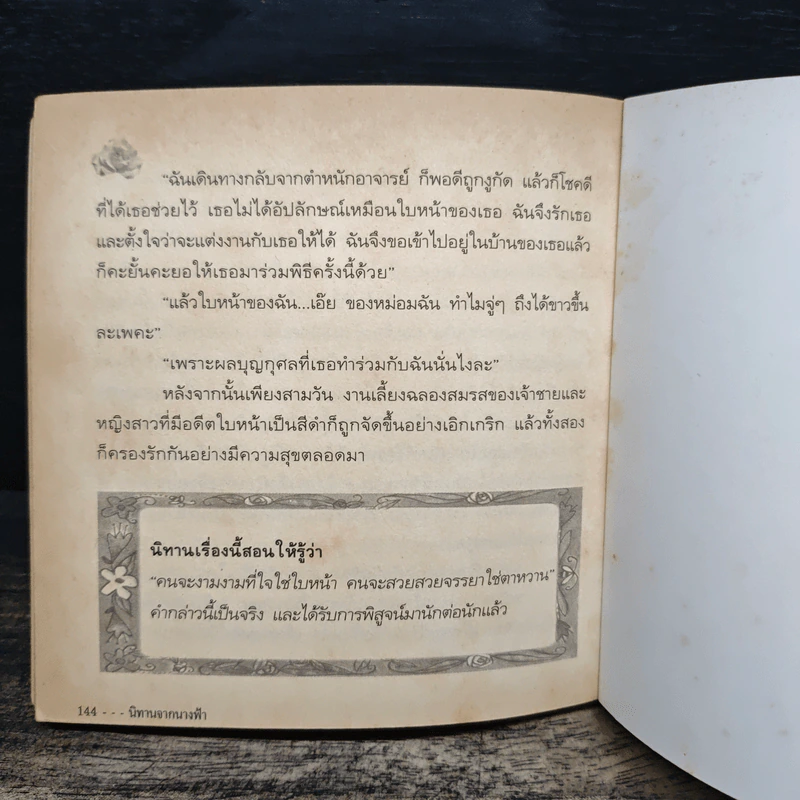 “ฉันเดินทางกลับจากตำหนักอาจารย์ ก็พอดีถูกงูกัด แล้วก็โชคดี
ที่ได้เธอช่วยไว้ เธอไม่ได้อัปลักษณ์เหมือนใบหน้าของเธอ ฉันจึงรักเธอ
และตั้งใจว่าจะแต่งงานกับเธอให้ได้ ฉันจึงขอเข้าไปอยู่ในบ้านของเธอแล้ว
ก็คะยั้นคะยอให้เธอมาร่วมพิธีครั้งนี้ด้วย”
“แล้วใบหน้าของฉัน...เอ๊ย ของหม่อมฉัน ทำไมจู่ๆ ถึงได้ขาวขึ้น
ละเพคะ”
“เพราะผลบุญกุศลที่เธอทำร่วมกับฉันนั่นไงละ”
หลังจากนั้นเพียงสามวัน งานเลี้ยงฉลองสมรสของเจ้าชายและ
หญิงสาวที่มีอดีตใบหน้าเป็นสีดำก็ถูกจัดขึ้นอย่างเอิกเกริก แล้วทั้งสอง
ก็ครองรักกันอย่างมีความสุขตลอดมา
นิทานเรื่องนี้สอนให้รู้ว่า
“คนจะงามงามที่ใจใช่ใบหน้า คนจะสวยสวยจรรยาใช่ตาหวาน”
คำกล่าวนี้เป็นจริง และได้รับการพิสูจน์มานักต่อนักแล้ว
144 - - - นิทานจากนางฟ้า